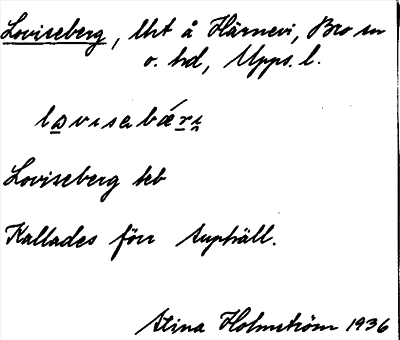 Loviseberg, lht å Härnevi, Bro sn
o. hd, Upps. l.
lo̲visabǽr̲i̲
Loviseberg kb
Kallades förr Suphäll.
Stina Holmström 1936